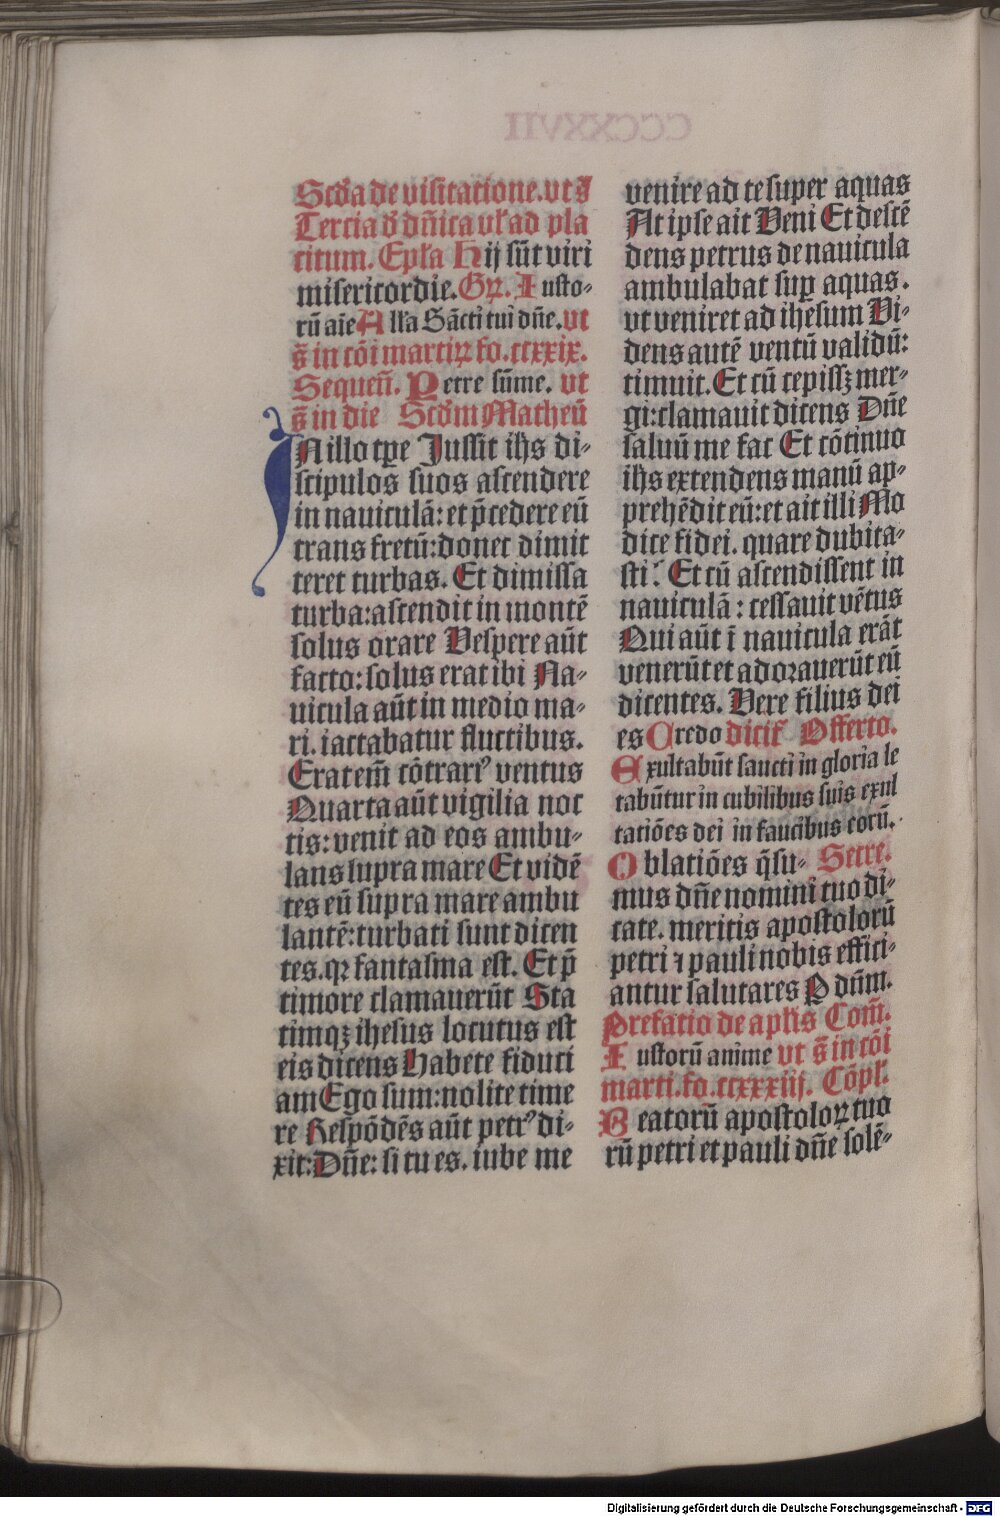 Scd̄a de visitatione. vt s̄
Tercia d̄ dn̄ica vl̄ ad pla
citum. Epl̄a Hij sūt viri
misericordie. Gr̄. Iusto-
rū aīe All̄a Sācti tui dn̄e. vt
s̄ in cōi martiꝝ fo. ccxxix.
Sequen̄. Petre sūme. vt
s̄ in die Scd̄m Matheū
IN illo tp̄e Jussit ihs di-
scipulos suos ascendere
in nauiculā: et p̄cedere eū
trans fretū: donec dimit
teret turbas. Et dimissa
turba: ascendit in montē
solus orare Vespere aūt
facto: solus erat ibi Na-
uicula aūt in medio ma-
ri. iactabatur fluctibus.
Erat em̄ cōtrariꝰ ventus
Quarta aūt vigilia noc
tis: venit ad eos ambu-
lans supra mare Et vidē
tes eū supra mare ambu
lantē: turbati sunt dicen
tes. qꝛ fantasma est. Et p̄
timore clamauerūt Sta
timqꝫ ihesus locutus est
eis dicens Habete fiduci
am Ego sum: nolite time
re Respōdēs aūt petrꝰ di-
xit: Dn̄e: si tu es. iube me
venire ad te super aquas
At ipse ait Veni Et descē
dens petrus de nauicula
ambulabat suꝑ aquas.
vt veniret ad ihesum Vi-
dens autē ventū validū:
timuit. Et cū cepissꝫ mer-
gi: clamauit dicens Dn̄e
saluū me fac Et cōtinuo
ihs extendens manū ap-
prehēdit eū: et ait illi Mo
dice fidei. quare dubita-
sti? Et cū ascendissent in
nauiculā: cessauit vētus
Qui aūt ī nauicula erāt
venerūt et adorauerūt eū
dicentes. Vere filius dei
es Credo dicit̄ Offerto.
Exultabūt sancti in gloria le
tabūtur in cubilibus suis exul
tatiōes dei in faucibus eorū.
Oblatiōes q̄su- Secre.
mus dn̄e nomini tuo di-
cate. meritis apostolorū
petri ⁊ pauli nobis effici-
antur salutares P dn̄m.
Prefatio de apl̄is Com̄.
Iustorū anime vt s̄ in cōi
marti. fo. ccxxxiij. Cōpl̄.
Beatorū apostoloꝝ tuo
rū petri et pauli dn̄e solē-
Digitalisierung gefördert durch die Deutsche Forschungsgemeinschaft - DFG